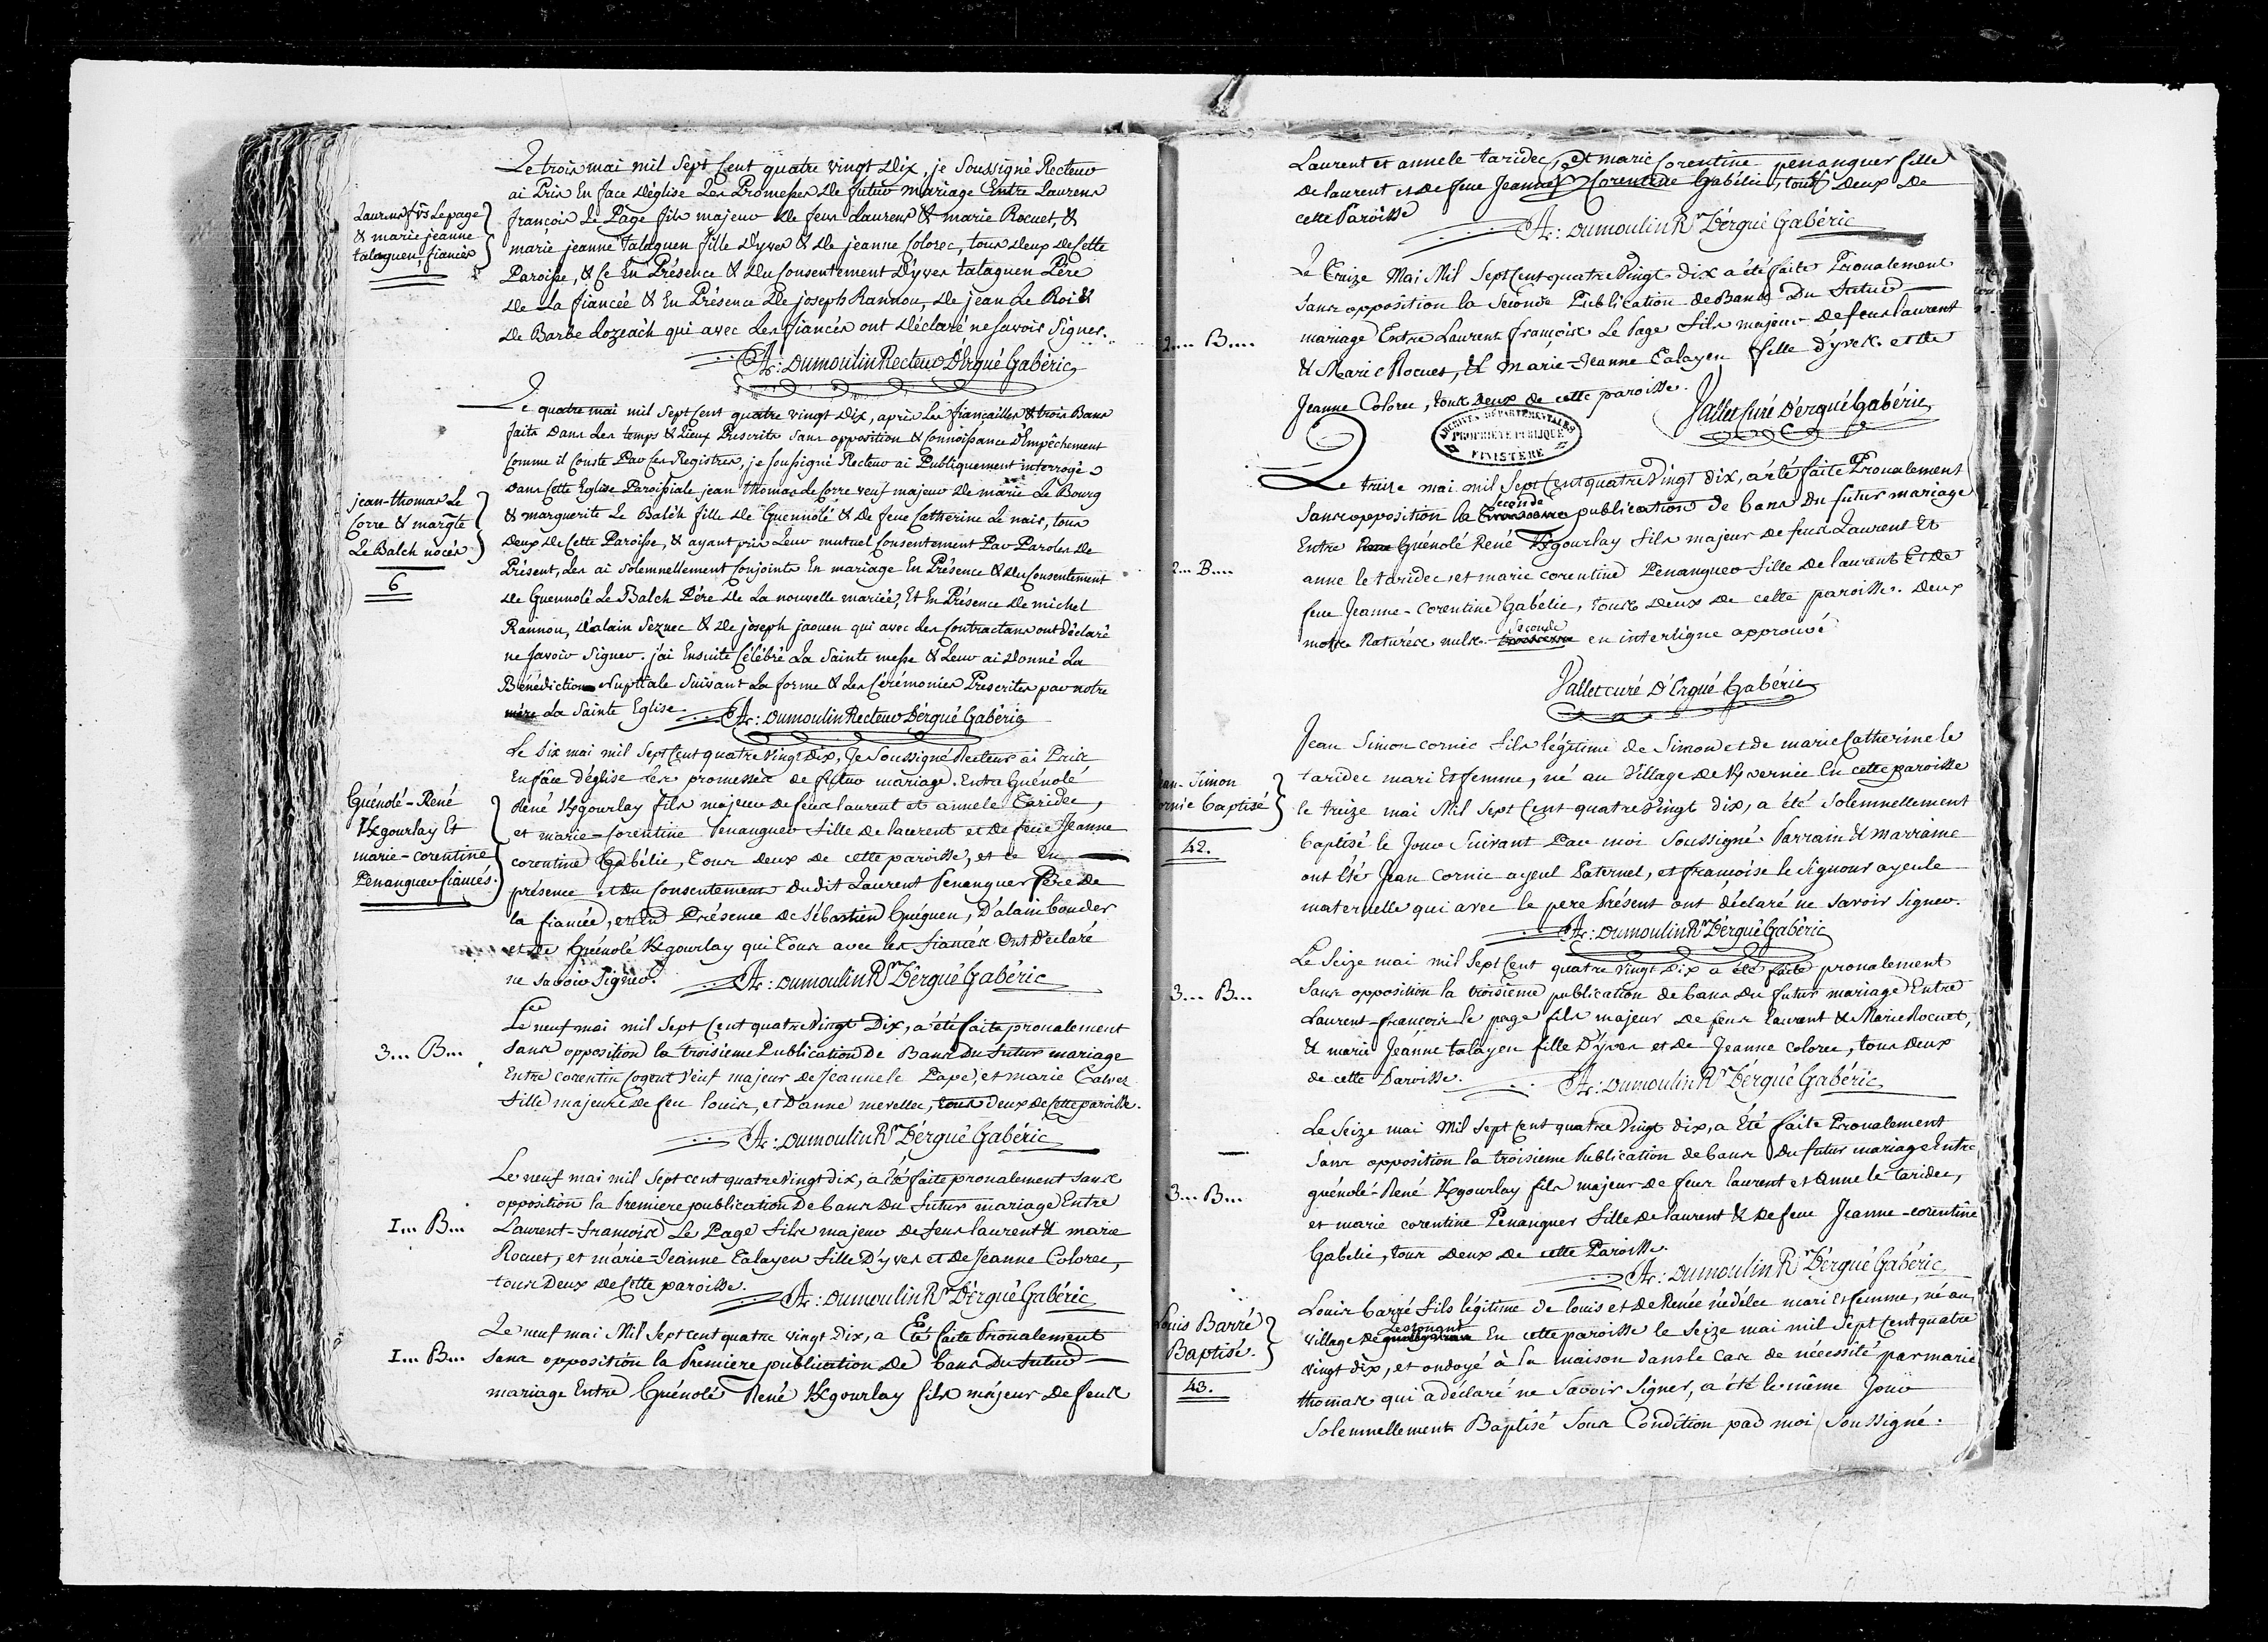 Le trois mai mil Sept Cent quatre vingt Dix, je Soussigné Recteur
ai Pris En face d'église Les Promesses De futur mariage Entre Laurens
françois Le Page fils majeur de feus Laurens & marie Rocuet, &
marie jeanne Talaguen fille d'yves & de jeanne Colorec, tous deux de Cette
Paroisse, & Ce En Présence & du Consentement D'yves talaguen Père
De La fiancée & En Présence De joseph Rannou, De jean Le Roi &
De Barbe Lozeach qui avec Les fiancés ont Déclaré ne Savoir Signer.
Laurens frs Lepage
& marie jeanne
talaguen, fiancés
A: Dumoulin Recteur D'Ergué Gabéric
Le quatre mai mil Sept Cent quatre vingt Dix, après Les fiançailles & trois Bans
faits Dans Les temps & Lieux Prescrits Sans opposition & Connoissance D'Empêchement
Comme il Conste Par Ces Registres, je Soussigné Recteur ai Publiquement interrogé
Dans Cette Eglise Paroissiale jean thomas Le Corre veuf majeur de marie Le Bourg
& marguerite Le Balch fille de Guennolé & de feue Catherine Le nair, tous
Deux de Cette Paroisse, & ayant pris Leur mutuel Consentement Par Paroles De
Présent, Les ai Solemnellement Conjoints En mariage En Présence & du Consentement
De Guennolé Le Balch Père De La nouvelle mariée, Et En Présence De michel
Rannou, d'alain Seznec & de joseph jaouen qui avec Les Contractans ont déclaré
ne Savoir Signer. j'ai Ensuite Célébré La Sainte messe & Leur ai Donné La
Bénédiction Nuptiale Suivant La forme & Les Cérémonies Prescrites par notre
mère La Sainte Eglise. A: Dumoulin Recteur D'ergué Gabéric
jean-thomas Le
Corre & margte
Le Balch nocés
6
Le Six mai mil Sept Cent quatre Vingt Dix, Je Soussigné Recteur ai Pris
En face d'église Les promesses de futur mariage Entre Guénolé
René Kgourlay fils majeur de feus laurent et anne le Taridec,
et marie-Corentine Penanguer fille de laurent et de feue Jeanne
corentine Gabélic, Tous deux de cette paroisse, et ce En
présence et du Consentement dudit Laurent Penanguer Père De
la fiancée, et En Présence de Sébastien Guéguen, D'alain Couder
et de Guénolé Kgourlay qui Tous avec les fiancés Ont Déclaré
ne savoir Signer. A: Dumoulin Rr D'ergué Gabéric
Guénolé-René
Kgourlay Et
marie-corentine
Penanguer fiancés.
Le neuf mai mil Sept Cent quatre Vingt Dix, a été faite pronalement
Sans opposition la troisieme Publication De Bans Du futur mariage
Entre Corentin Cogent Veuf majeur de Jeanne le Pape, et marie Calvez
fille majeure de feu louis, et D'anne mevellec, tous deux de Cette paroisse.
3... B...
A: Dumoulin Rr D'ergué Gabéric
Le neuf mai mil Sept cent quatre Vingt dix, a été faite pronalement sans
opposition la Premiere publication De bans Du futur mariage Entre
Laurent-françois Le Page fils majeur de feus laurent & marie
Rocuet, et marie-Jeanne Talayen fille D'yves et De Jeanne Colorec,
tous Deux de Cette paroisse. A: Dumoulin Rr D'ergué Gabéric
1... B...
Le neuf mai Mil Sept cent quatre vingt Dix, a Eté faite Pronalement
sans opposition la Premiere publication De bans Du futur
mariage Entre Guénolé René Kgourlay fils majeur de feus
1... B...
Laurent et anne le taridec, et marie Corentine penanguer fille
de laurent et de feue Jeanne Corentine Gabélic, tous Deux De
cette Paroisse
A: Dumoulin Rr D'ergué Gabéric
Le Treize Mai Mil Sept Cent quatre Vingt Dix a été faite Pronalement
Sans opposition la Seconde Publication de Bans Du Futur
mariage Entre Laurent françois Le Page fils majeur de feus laurent
& Marie Rocuet, & Marie-Jeanne Talayen fille d'yves et de
Jeanne Colorec, tous Deux de cette paroisse.
2... B...
Vallet Curé D'ergué Gabéric
ARCHIVES DÉPARTEMENTALES
PROPRIÉTÉ PUBLIQUE
FINISTÈRE
Le treize mai mil Sept Cent quatre Vingt dix, a été faite Pronalement
Seconde
Sans opposition la publication de bans Du futur mariage
Entre Guénolé René Kgourlay fils majeur de feus Laurent Et
anne le taridec et marie corentine Penanguer fille de laurent Et De
feue Jeanne-Corentine Gabélic, tous deux de cette paroisse. Deux
Seconde
mots Raturés nuls. en interligne approuvé
2... B...
Vallet curé D'Ergué Gabéric
Jean Simon cornic fils légitime de Simon et de marie Catherine le
taridec mari Et femme, né au Village de Kvernic En cette paroisse
le treize mai Mil Sept Cent quatre Vingt dix, a été Solemnellement
baptisé le Jour Suivant Par moi Soussigné. Parrain & marraine
ont été Jean Cornic ayeul Paternel, et françoise le Signour ayeule
maternelle qui avec le pere Présent ont déclaré ne Savoir Signer.
A: Dumoulin Rr D'ergué Gabéric
Jean-Simon
Cornic baptisé
42.
Le Seize mai mil Sept Cent quatre Vingt Dix a été faite pronalement
Sans opposition la troisieme publication de bans du futur mariage Entre
Laurent-françois le page fils majeur de feus laurent & Marie Rocuet,
& marie Jeanne talayen fille D'yves et de Jeanne colorec, tous deux
de cette Paroisse. A: Dumoulin Rr D'ergué Gabéric
3... B...
Le Seize mai Mil Sept Cent quatre Vingt dix, a Eté faite Pronalement
Sans opposition la troisieme Publication de bans Du futur mariage Entre
guénolé-René Kgourlay fils majeur de feus laurent et Anne le taridec,
et marie corentine Penanguer fille de laurent & de feue Jeanne-corentine
Gabélic, tous deux de cette Paroisse.
3... B...
A: Dumoulin Rr D'ergué Gabéric
Louis barré fils légitime de louis et de Renée nédélec mari et femme, né au
village de En cette paroisse le Seize mai mil Sept Cent quatre
vingt dix, et ondoyé à la maison dans le Cas de nécessité par marie
thomas qui a déclaré ne Savoir Signer, a été le même Jour
Solemnellement Baptisé Sous Condition par moi Soussigné.
Louis Barré
Baptisé.
43.